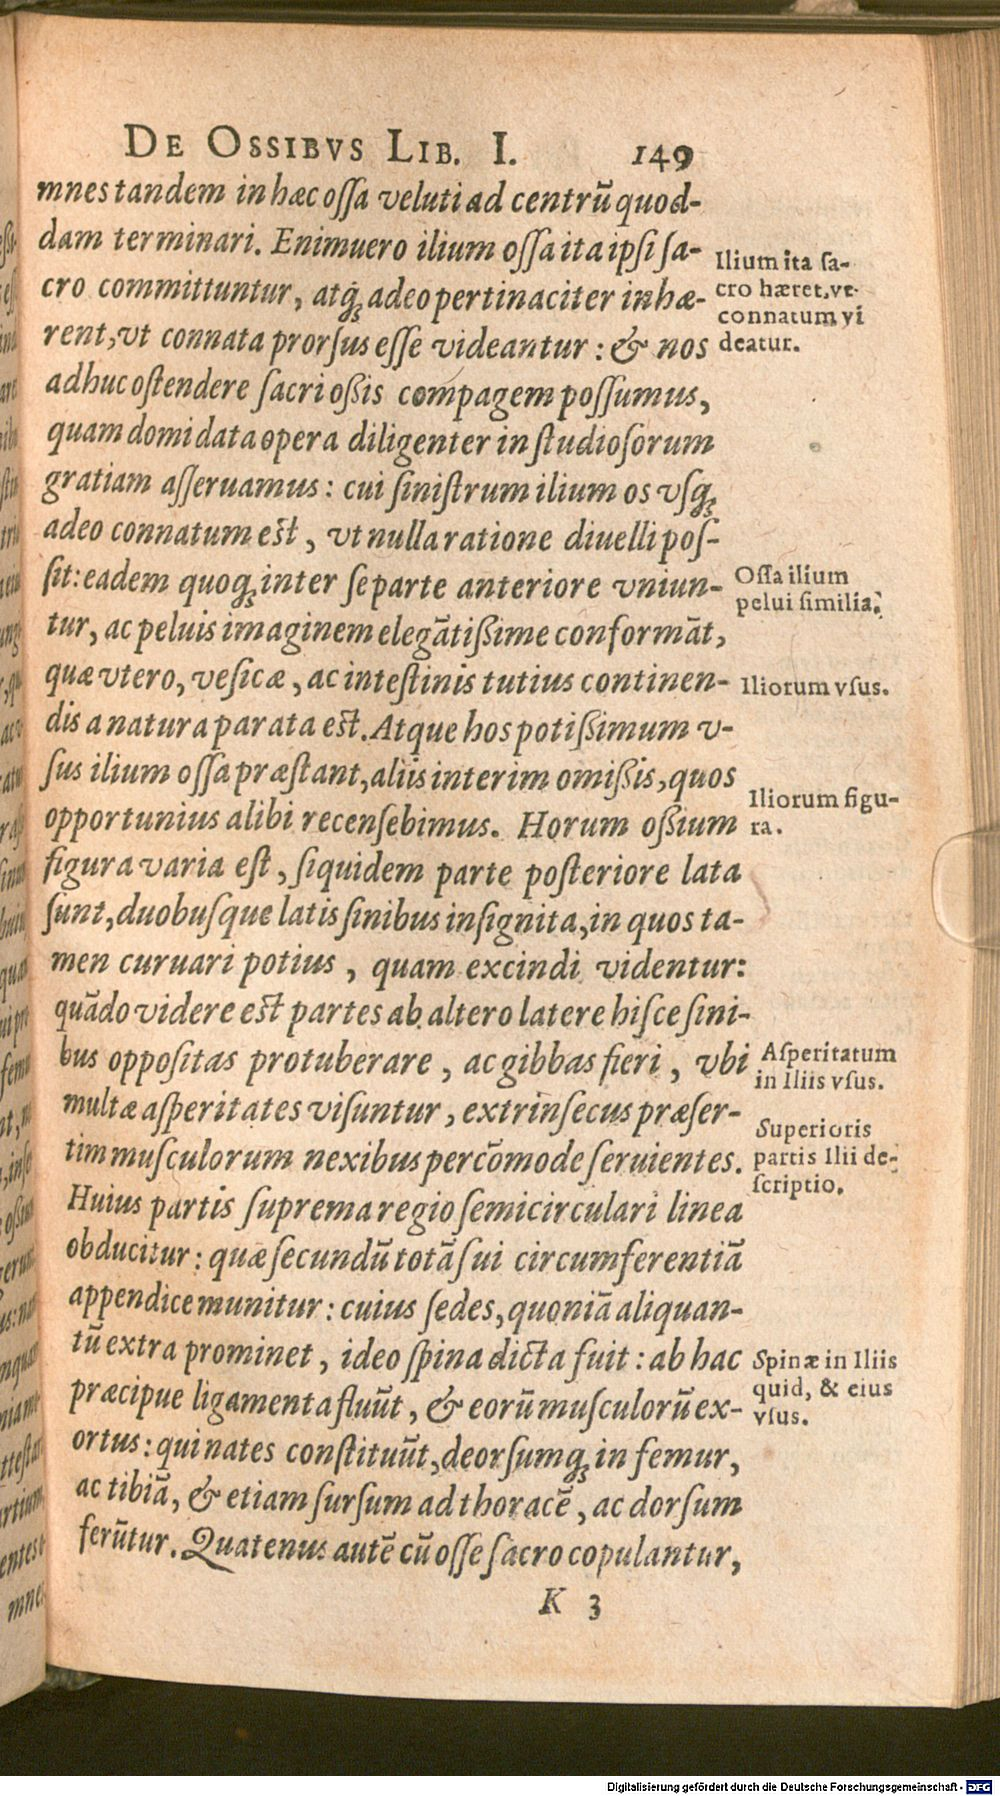 DE OSSIBVS LIB. I. 149
mnes tandem in hæc ossa veluti ad centrū quod-
dam terminari. Enimuero ilium ossa ita ipsi sa-
cro committuntur, atq; adeo pertinaciter inhæ-
rent, vt connata prorsus esse videantur: & nos
adhuc ostendere sacri oßis compagem possumus,
quam domi data opera diligenter in studiosorum
gratiam asseruamus: cui sinistrum ilium os vsq;
adeo connatum est, vt nulla ratione diuelli pos-
sit: eadem quoq; inter se parte anteriore vniun-
tur, ac peluis imaginem elegātißime conformāt,
quæ vtero, vesicæ, ac intestinis tutius continen-
dis a natura parata est. Atque hos potißimum v-
sus ilium ossa præstant, aliis interim omißis, quos
opportunius alibi recensebimus. Horum oßium
figura varia est, siquidem parte posteriore lata
sunt, duobusque latis sinibus insignita, in quos ta-
men curuari potius, quam excindi videntur:
quādo videre est partes ab altero latere hisce sini-
bus oppositas protuberare, ac gibbas fieri, vbi
multæ asperitates visuntur, extrinsecus præser-
tim musculorum nexibus percōmode seruientes.
Huius partis suprema regio semicirculari linea
obducitur: quæ secundū totā sui circumferentiā
appendice munitur: cuius sedes, quoniā aliquan-
tū extra prominet, ideo spina dicta fuit: ab hac
præcipue ligamenta fluūt, & eorū musculorū ex-
ortus: qui nates constituūt, deorsumq; in femur,
ac tibiā, & etiam sursum ad thoracē, ac dorsum
ferūtur. Quatenus autē cū osse sacro copulantur,
K 3
Ilium ita sa-
cro hæret, vt
connatum vi
deatur.
Ossa ilium
pelui similia.
Iliorum vsus.
Iliorum figu-
ra.
Asperitatum
in Iliis vsus.
Superioris
partis Ilii de-
scriptio.
Spinæ in Iliis
quid, & eius
vsus.
Digitalisierung gefördert durch die Deutsche Forschungsgemeinschaft - DFG